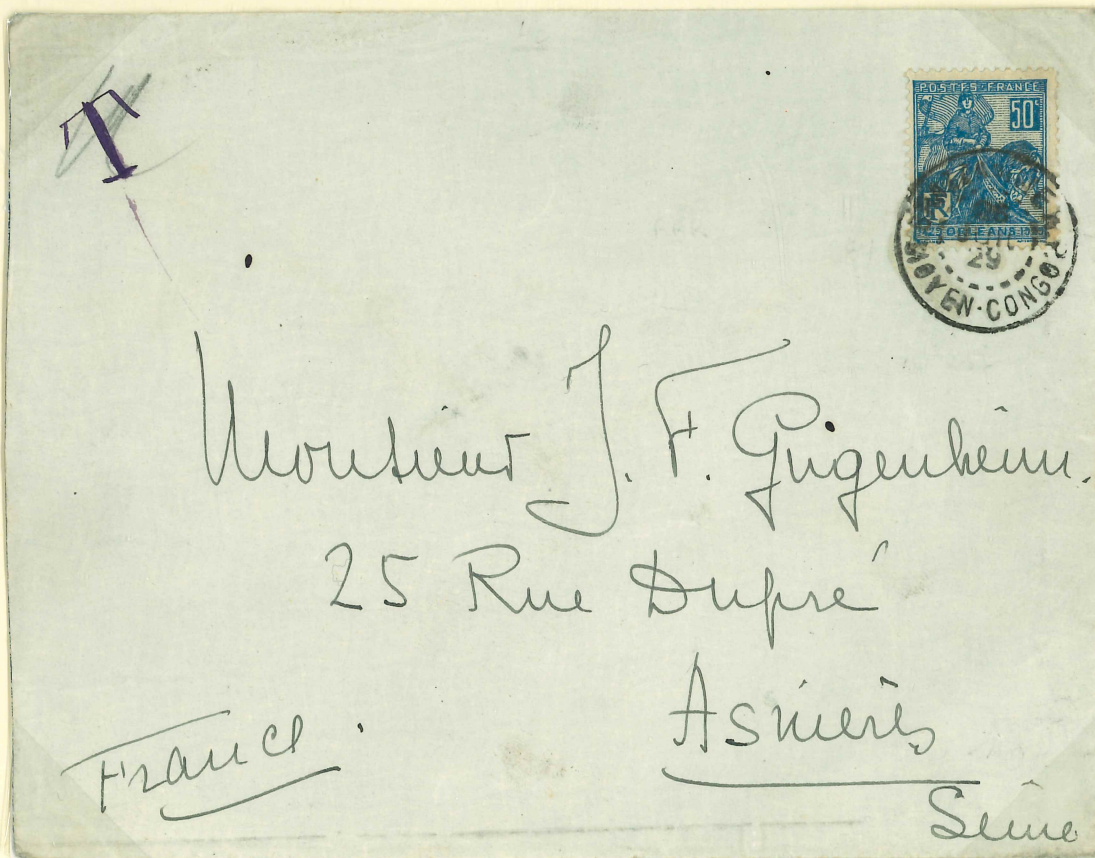 T
POSTES FRANCE
50c
RF
ORLEANS
29
MOYEN-CONGO
Monsieur J. F. Gugenheim.
25 Rue Dupré
Asnières
Seine
France.